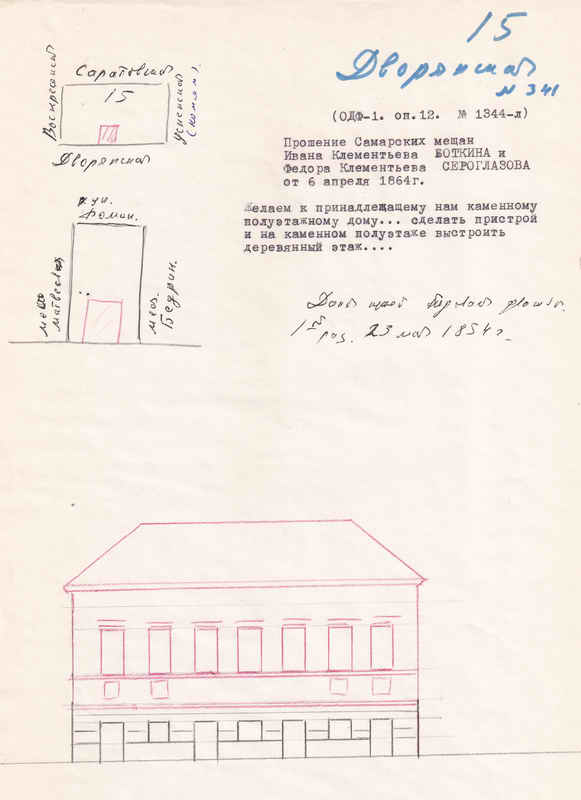 15
Дворянская
№ 341
Саратовская
Воскресенская
15
Успенская
(комсом.)
Дворянская
(ОДФ-1. оп.12. № 1344-л)
Прошение Самарских мещан
Ивана Клементьева БОТКИНА и
Федора Клементьева СЕРОГЛАЗОВА
от 6 апреля 1864г.
Желаем к принадлежащему нам каменному
полуэтажному дому... сделать пристрой
и на каменном полуэтаже выстроить
деревянный этаж....
куп.
Фомин.
мещ.
Бедрин.
23 мая 1854г.